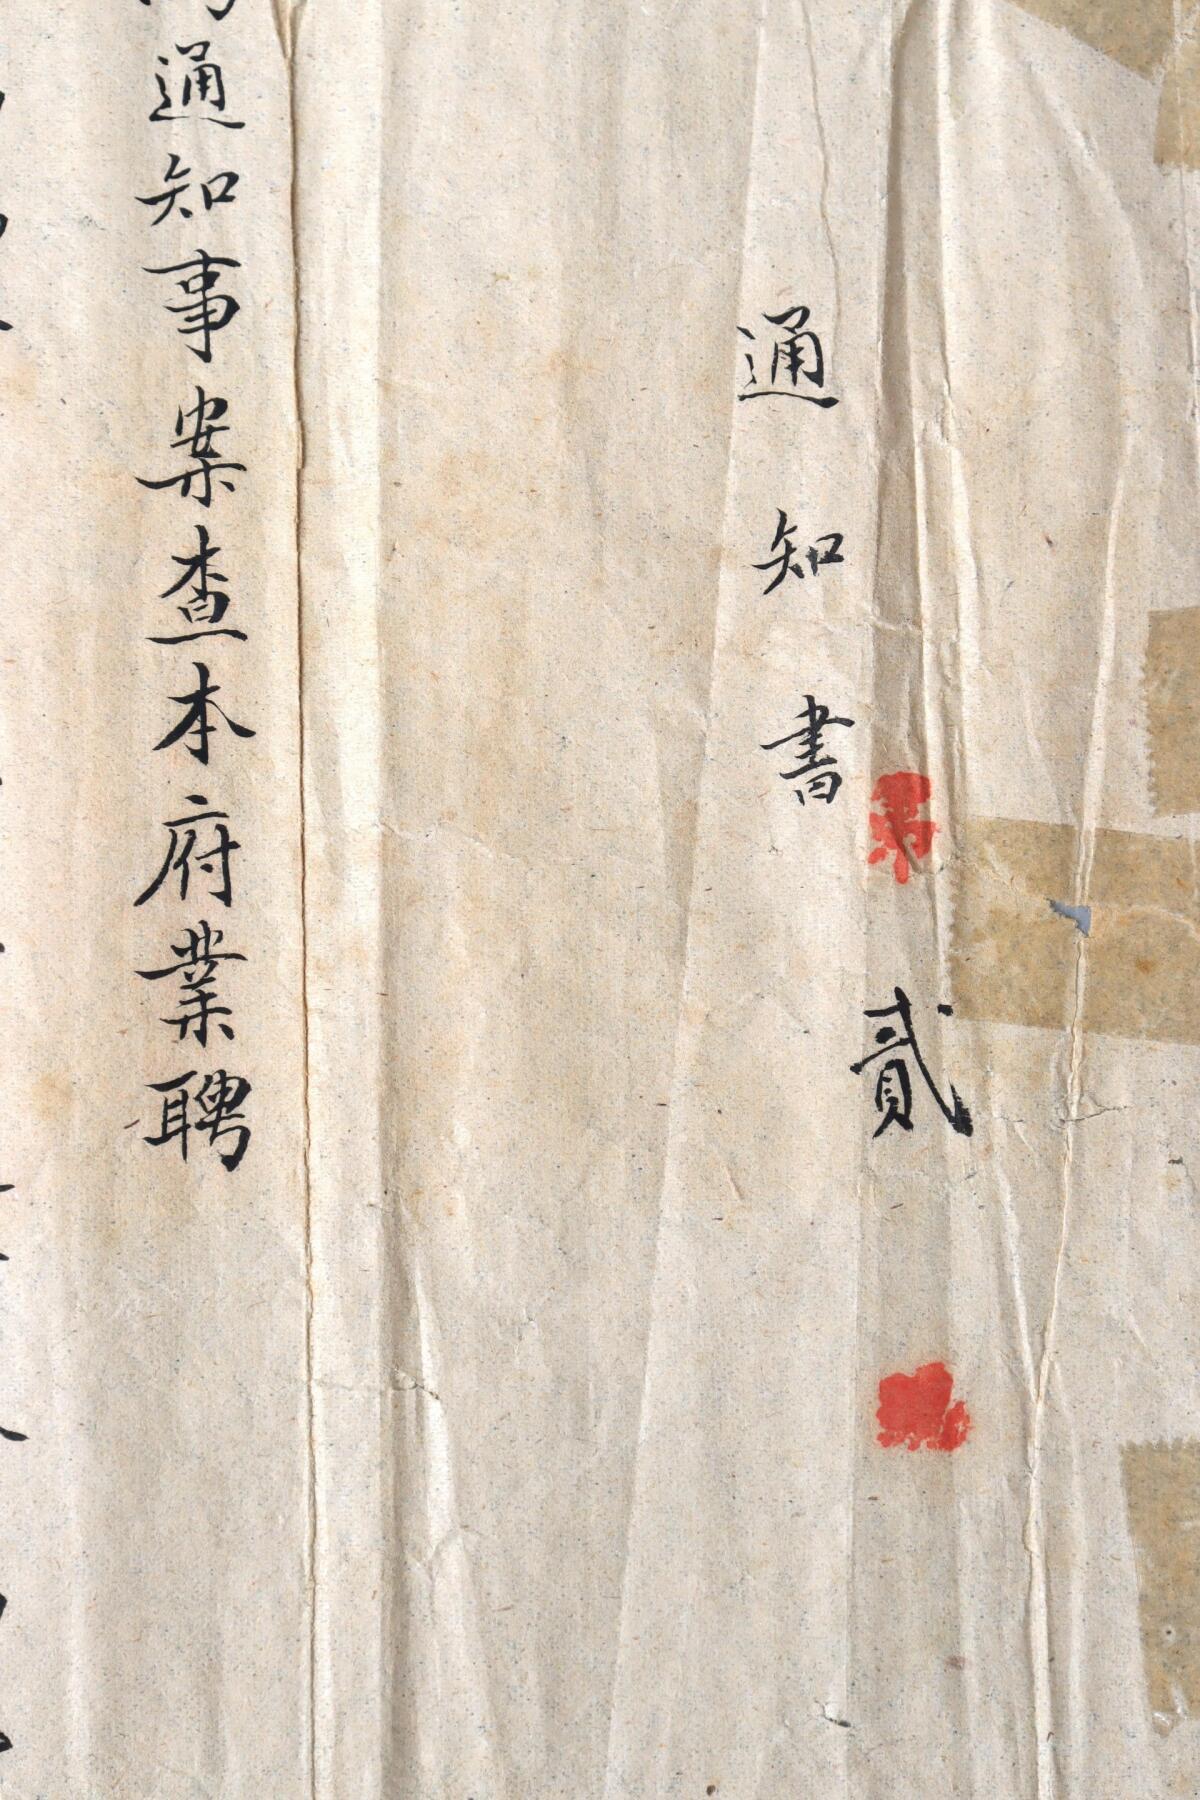 第貳號
通知書
通知事案查本府業聘